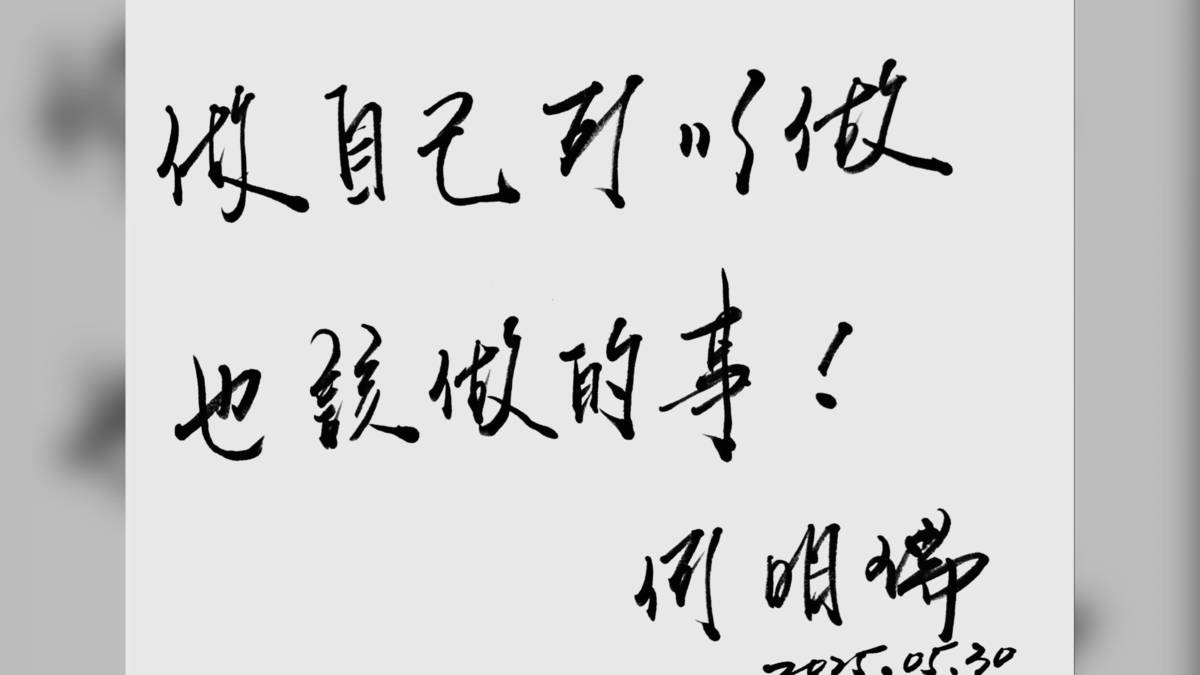 做自己可以做
也該做的事！
何明瑞
2025.05.30